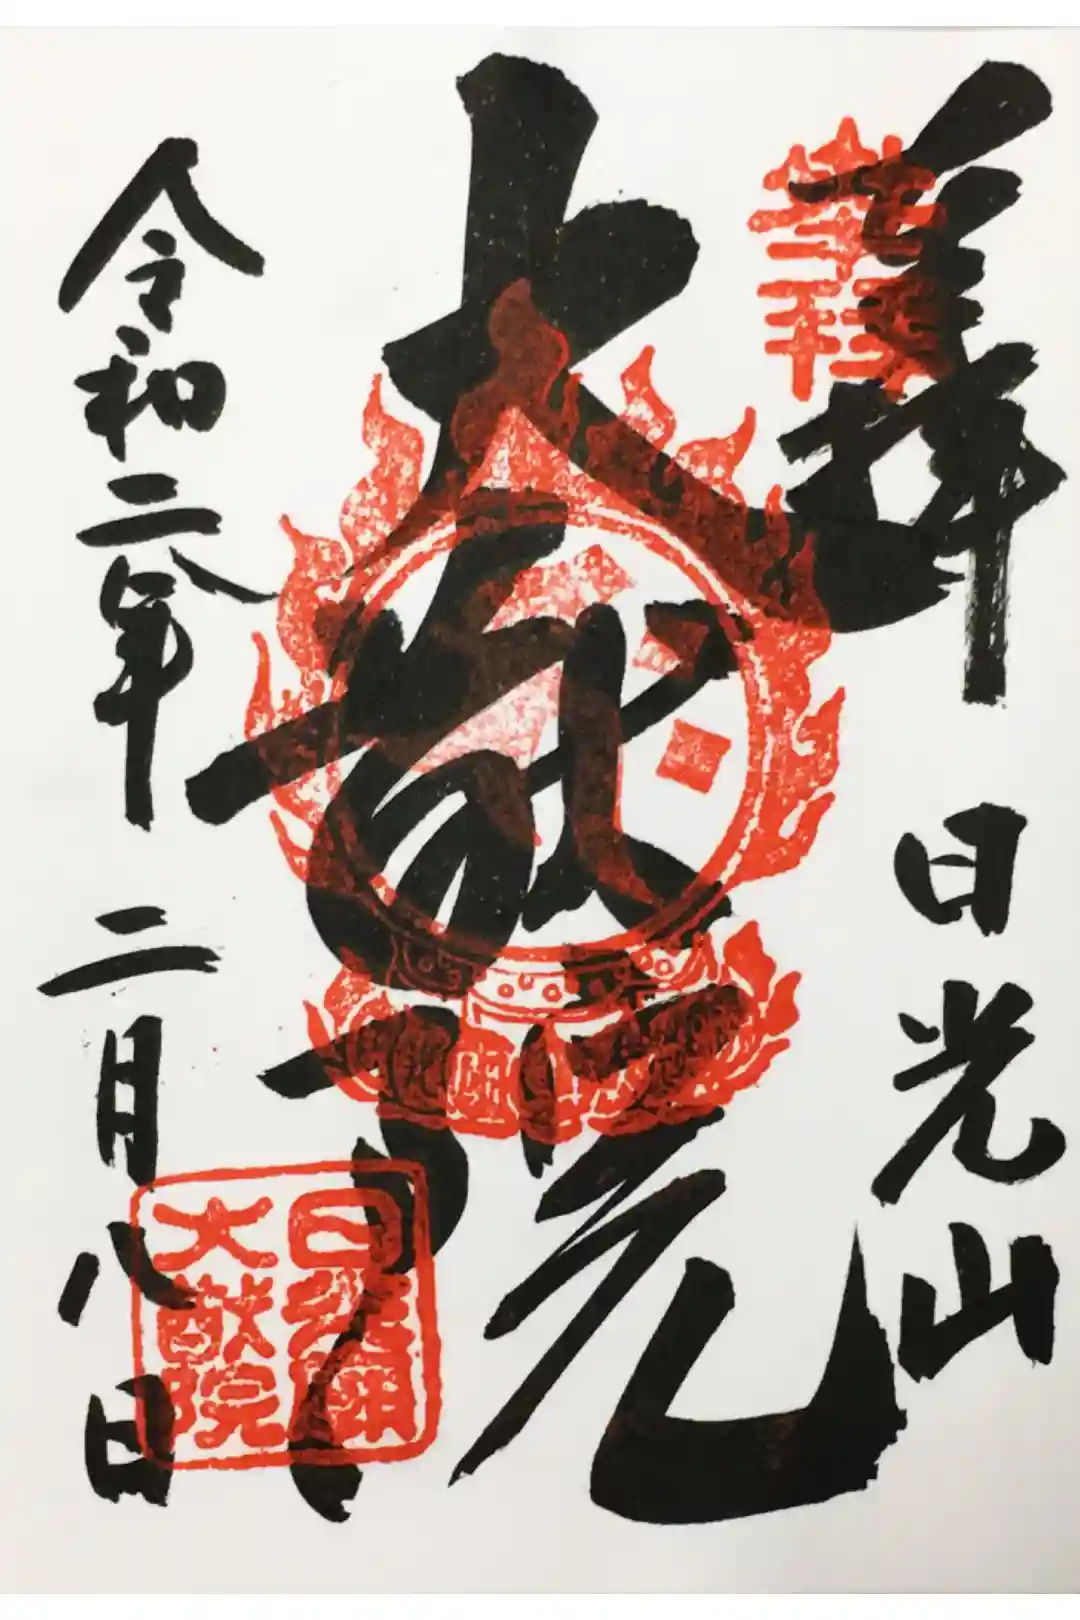 奉拝 日光山
大猷院
令和二年二月八日
日光廟
大猷院